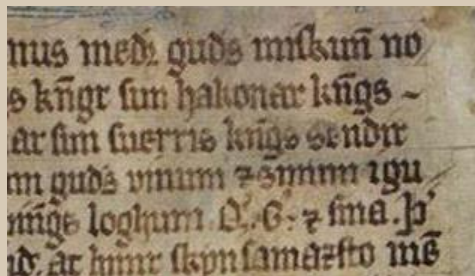 nus medꝛ guds miskun no
s kn̄gr sun hakonar kn̄gs ~
ar sun suerris kn̄gs sendir
um guds vinum ⁊ sinum i gu
loghum. Q. G. ⁊ sina. þ
ar hinir skynsamazsto